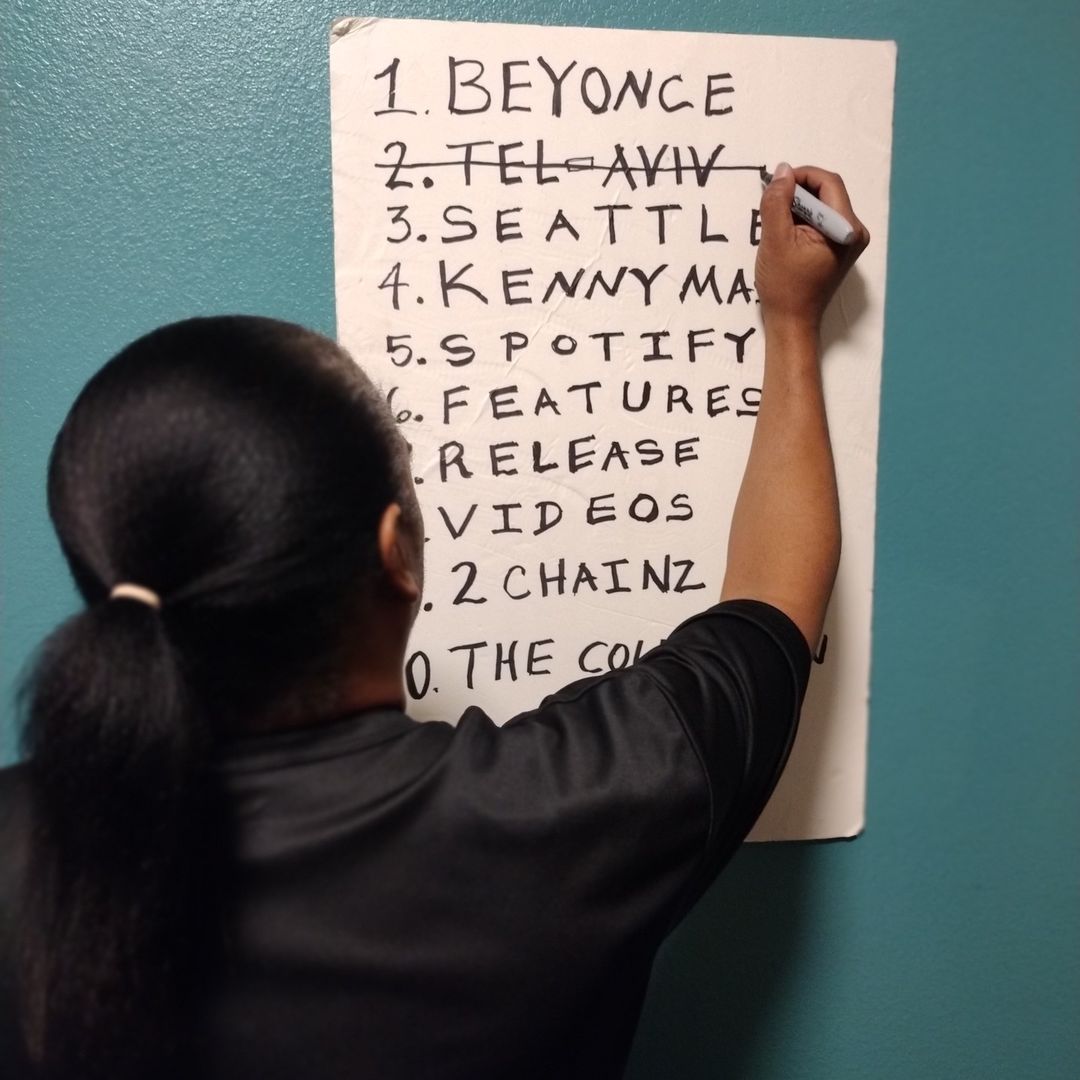 1. BEYONCE
2. TEL-AVIV
3. SEATTLE
4. KENNY
5. SPOTIFY
6. FEATURES
. RELEASE
. VIDEOS
. 2 CHAINZ
0. THE